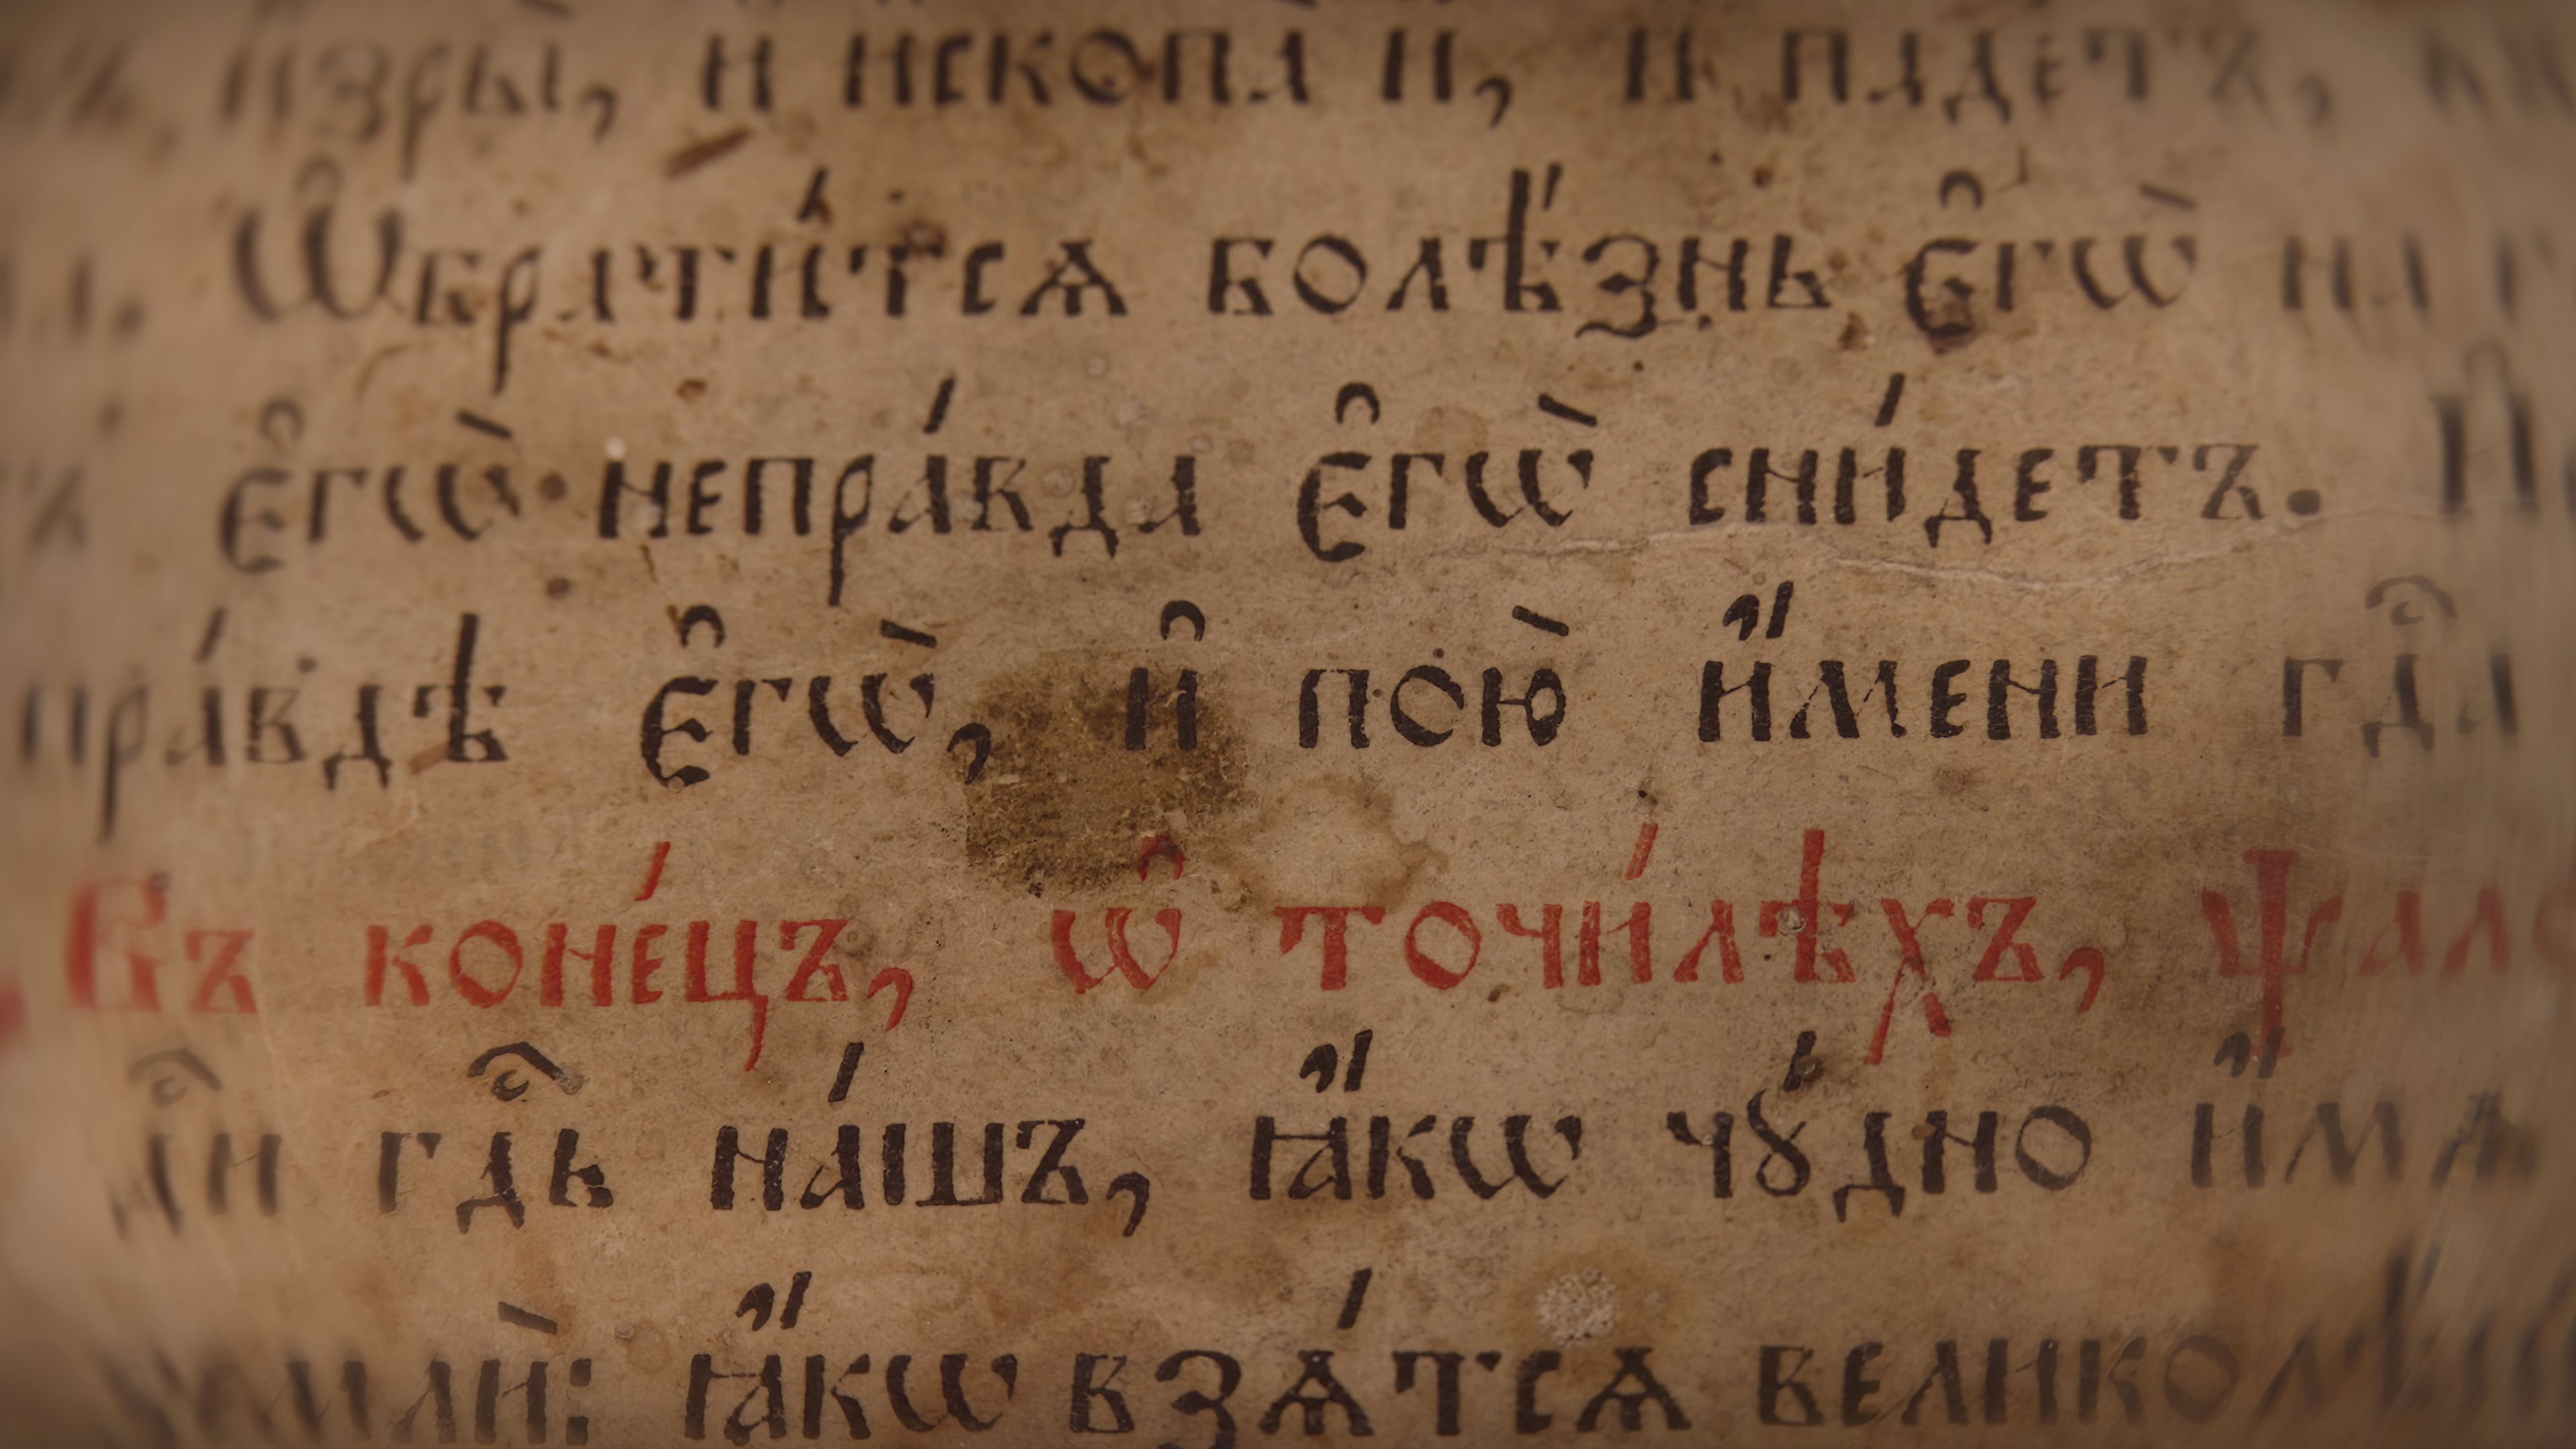 и҆зры̀, и҆ и҆скопа̀ и҆̀, и҆ паде́тъ,
Ѡ҆брати́тсѧ болѣ́знь є҆гѡ̀ на
є҆гѡ̀ непра́вда є҆гѡ̀ сни́детъ.
пра́вдѣ є҆гѡ̀, и҆ пою̀ и҆́мени гдⷭ҇а
Въ коне́цъ, ѡ҆ точи́лѣхъ,
гдⷭ҇и гдⷭ҇ь на́шъ, ꙗ҆́кѡ чꙋ́дно и҆́мѧ
землѝ: ꙗ҆́кѡ взѧ́тсѧ